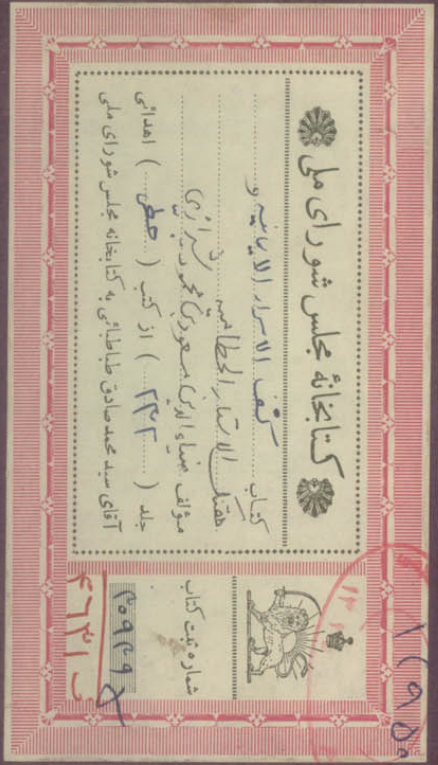 کتابخانهٔ مجلس شورای ملی
کتاب کشف الاسرار الایمانیه و
الاستار الحطامیه
مؤلف ضیاء الدین مسعود بن محمود شیرازی
جلد ( ۲۴۲ ) از کتب ( خطی ) اهدائی
آقای سید محمد صادق طباطبائی به کتابخانه مجلس شورای ملی
شماره ثبت کتاب
۳۰۹۳۹
۴۶۳۱